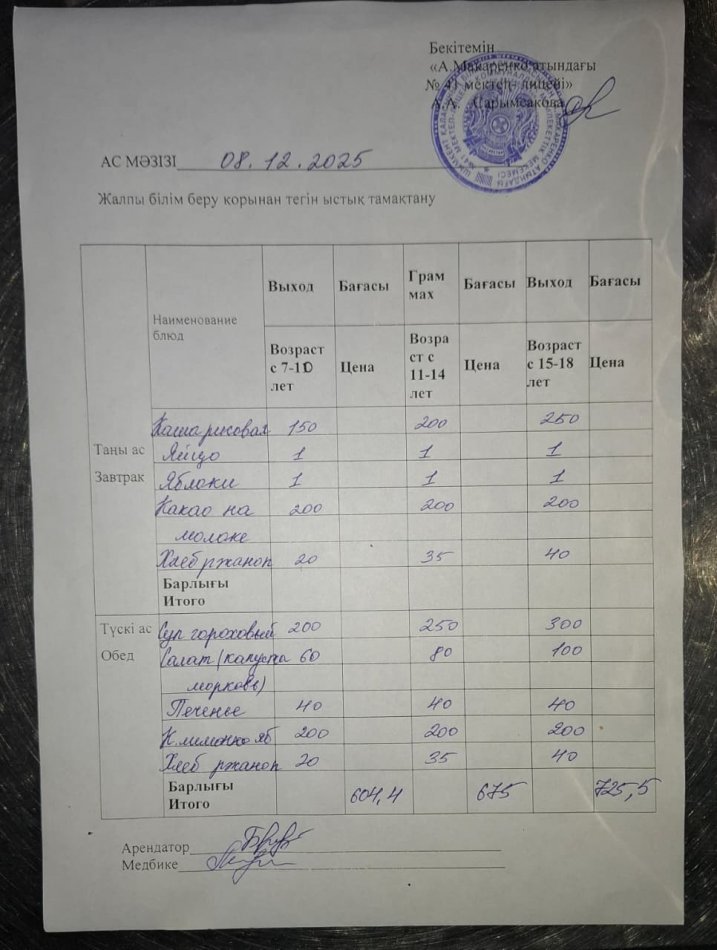 Бекітемін
«А.Макаренко атындағы
№ 41 мектеп- лицейі»
А.А. Сарымсакова
АС МӘЗІЗІ 08.12.2025
Жалпы білім беру қорынан тегін ыстық тамақтану
Наименование блюд Выход Бағасы Грам мах Бағасы Выход Бағасы
Возраст с 7-10 лет Цена Возра ст с 11-14 лет Цена Возраст с 15-18 лет Цена
Таңы ас
Завтрак
Каша рисовая 150 200 250
Яйцо 1 1 1
Яблоки 1 1 1
Какао на 200 200 200
молоке
Хлеб ржаной 20 35 40
Барлығы
Итого
Түскі ас
Обед
Суп гороховый 200 250 300
Салат (капуста 60 80 100
морковь)
Печенье 40 40 40
200 200 200
Хлеб ржаной 20 35 40
Барлығы
Итого 604,4 675 725,5
Арендатор
Медбике